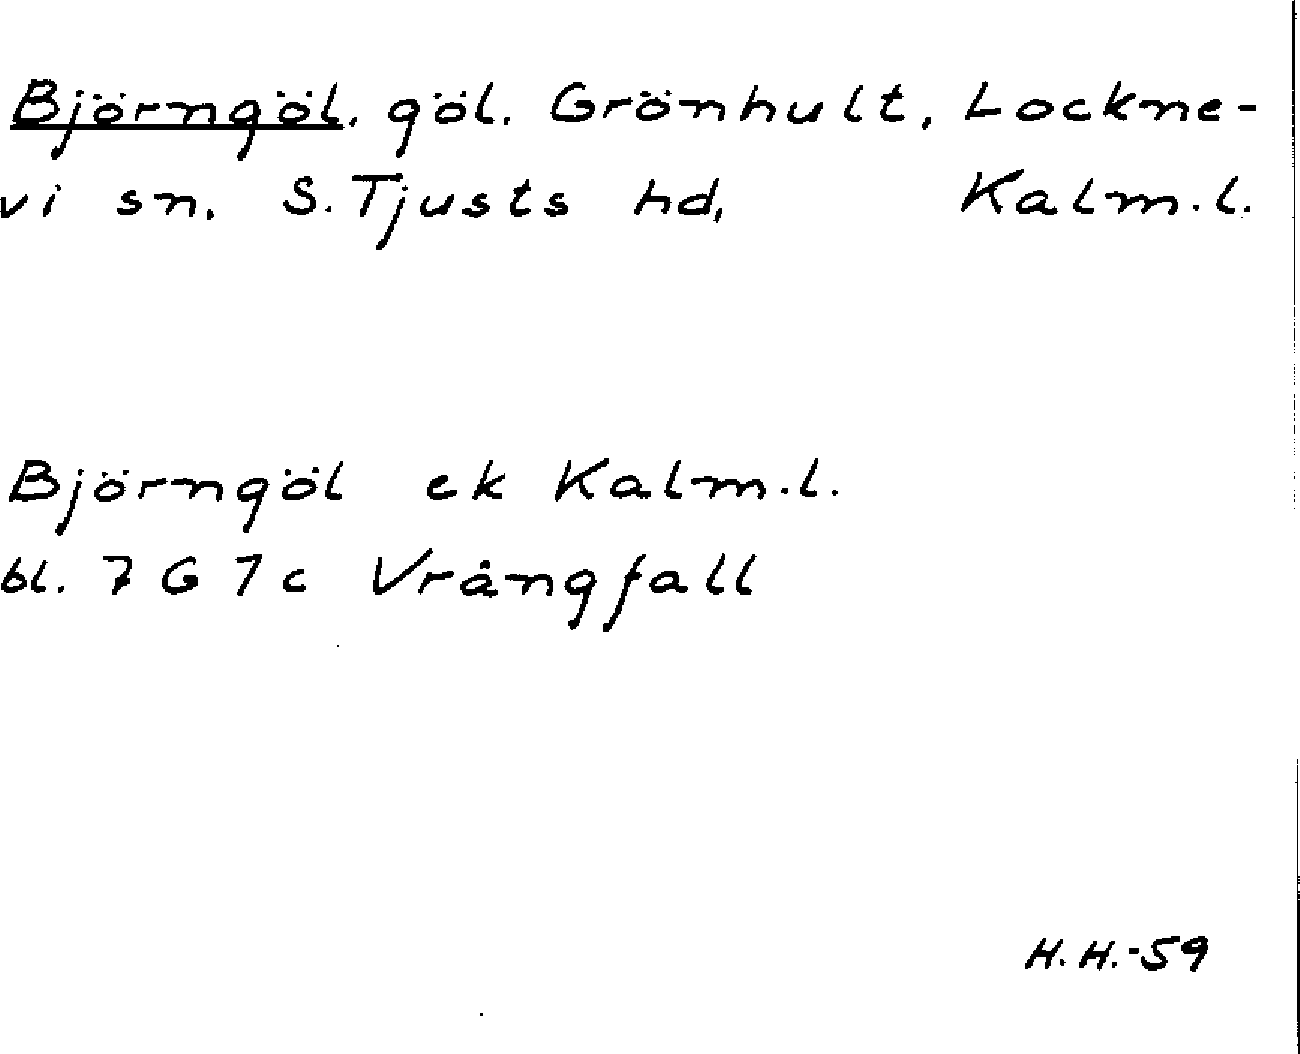 Björngöl. göl. Grönhult, Lockne-
vi sn. S. Tjusts hd, Kalm.l.
Björngöl ek Kalm.l.
bl. 7 G 7 c Vrångfall
H.H.-59